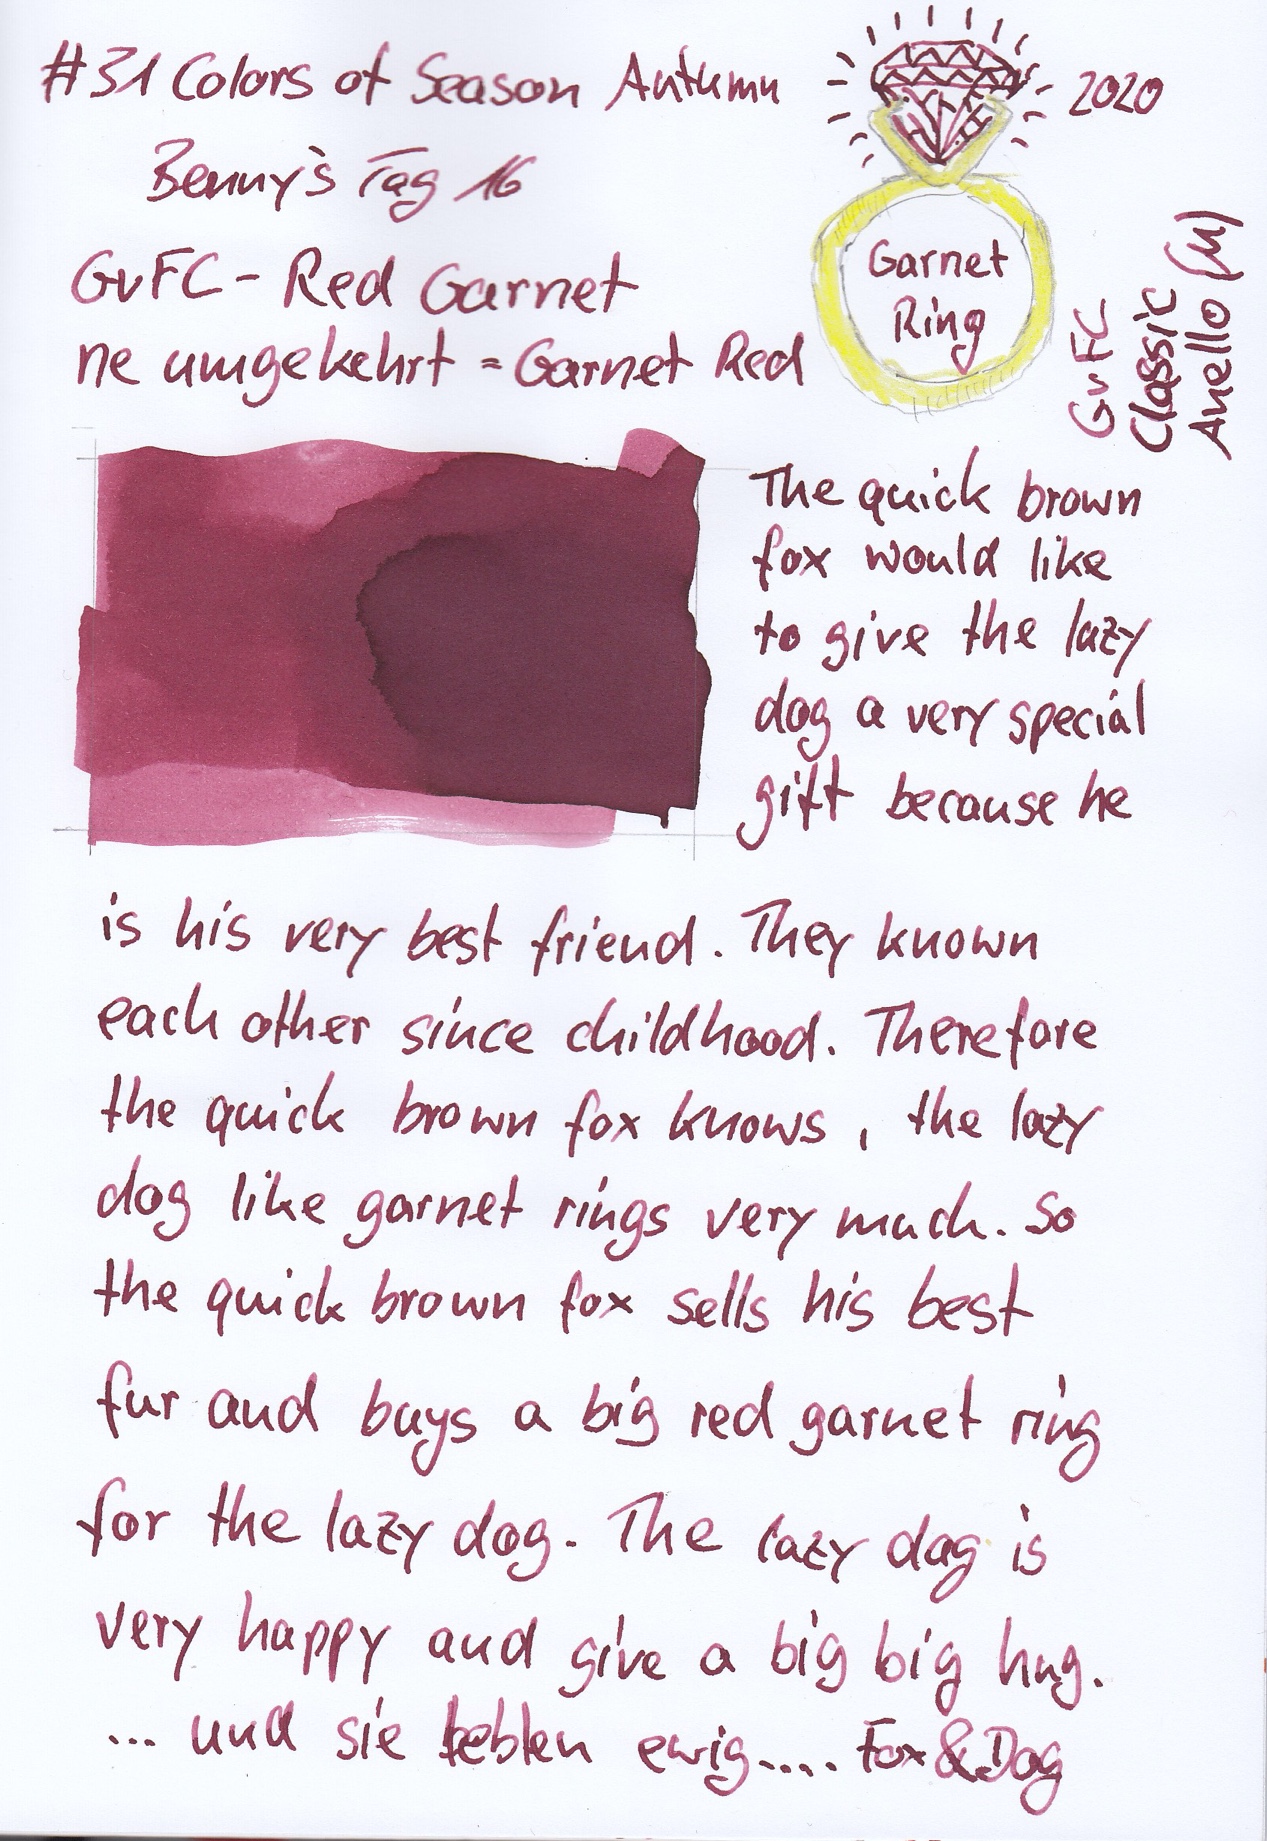 #31 Colors of Season Autumn 2020
Benny's Tag 16
GvFC - Red Garnet
ne umgekehrt = Garnet Red
Garnet
Ring
GvFC
Classic
Anello (M)
The quick brown
fox would like
to give the lazy
dog a very special
gift because he
is his very best friend. They known
each other since childhood. Therefore
the quick brown fox knows, the lazy
dog like garnet rings very much. So
the quick brown fox sells his best
fur and buys a big red garnet ring
for the lazy dog. The lazy dog is
very happy and give a big big hug.
... und sie lebten ewig..... Fox & Dog